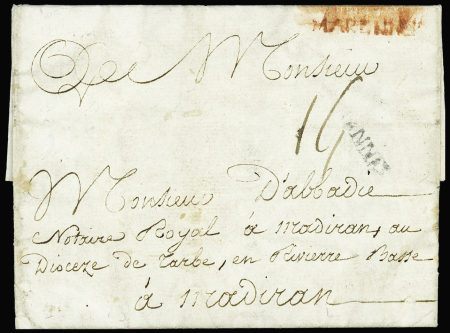 MARENN
De Monsieur
16
Monsieur D'abbadie
Notaire Royal à madiran, au
Dioceze de Tarbe, en Rivierre Basse
à madiran